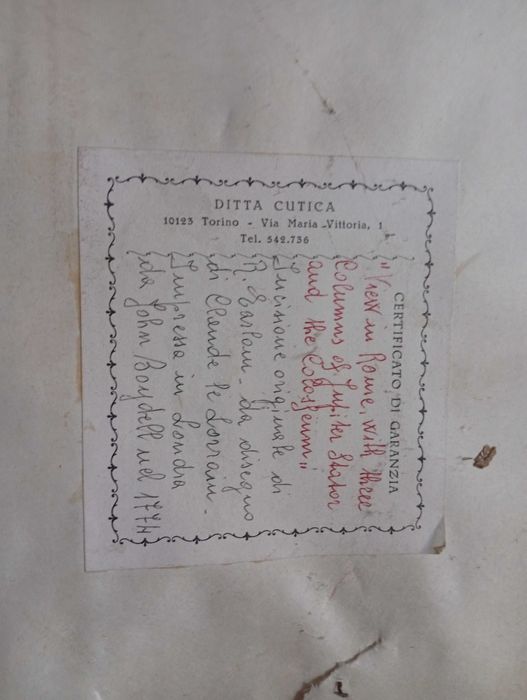 DITTA CUTICA
10123 Torino - Via Maria Vittoria, 1
Tel. 542.736
CERTIFICATO DI GARANZIA
"View in Rome, with three
Columns of Jupiter Stator
and the Colosseum"
Incisione originale di
R. Earlom - da disegno
di Claude le Lorrain -
Impressa in Londra
da John Boydell nel 1774